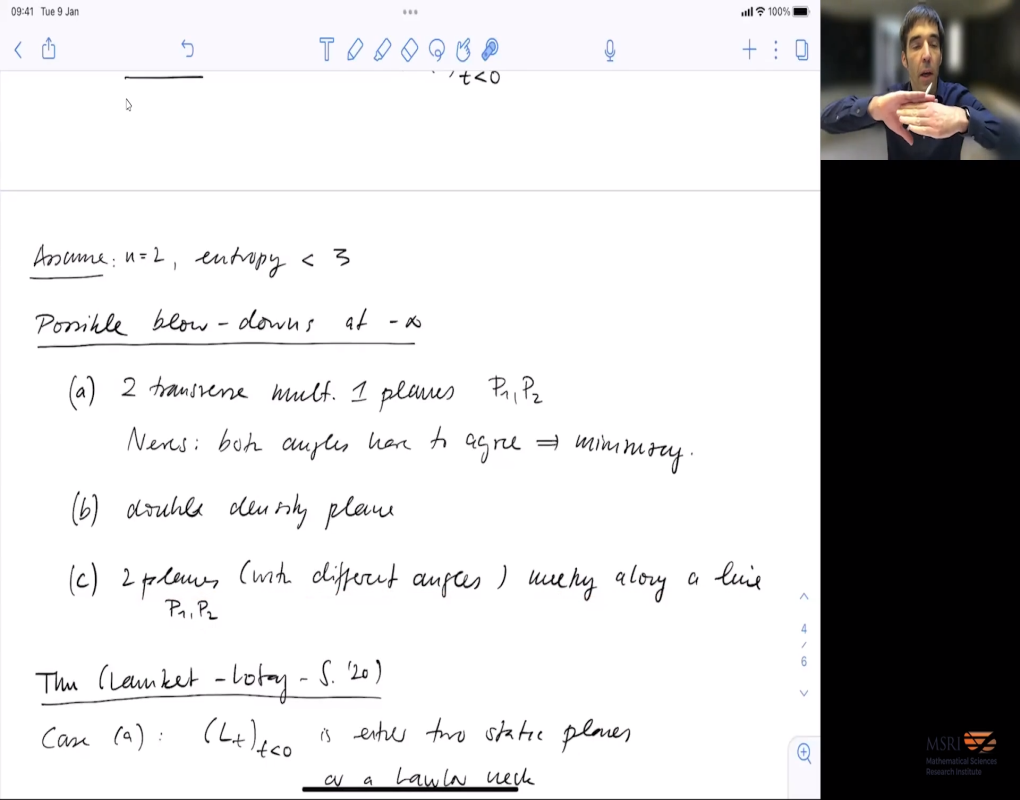 09:41 Tue 9 Jan
100%
t<0
Assume: n=2, entropy < 3
Possible blow-downs at -∞
(a) 2 transverse mult. 1 planes P₁,P₂
Neves: both angles have to agree ⇒ minimizing.
(b) double density plane
(c) 2 planes (with different angles) meeting along a line
P₁,P₂
4
/
6
Thm (Lambert-Lotay-S. '20)
Case (a): (L_t)_{t<0} is either two static planes
or a Lawlor neck
MSRI
Mathematical Sciences
Research Institute